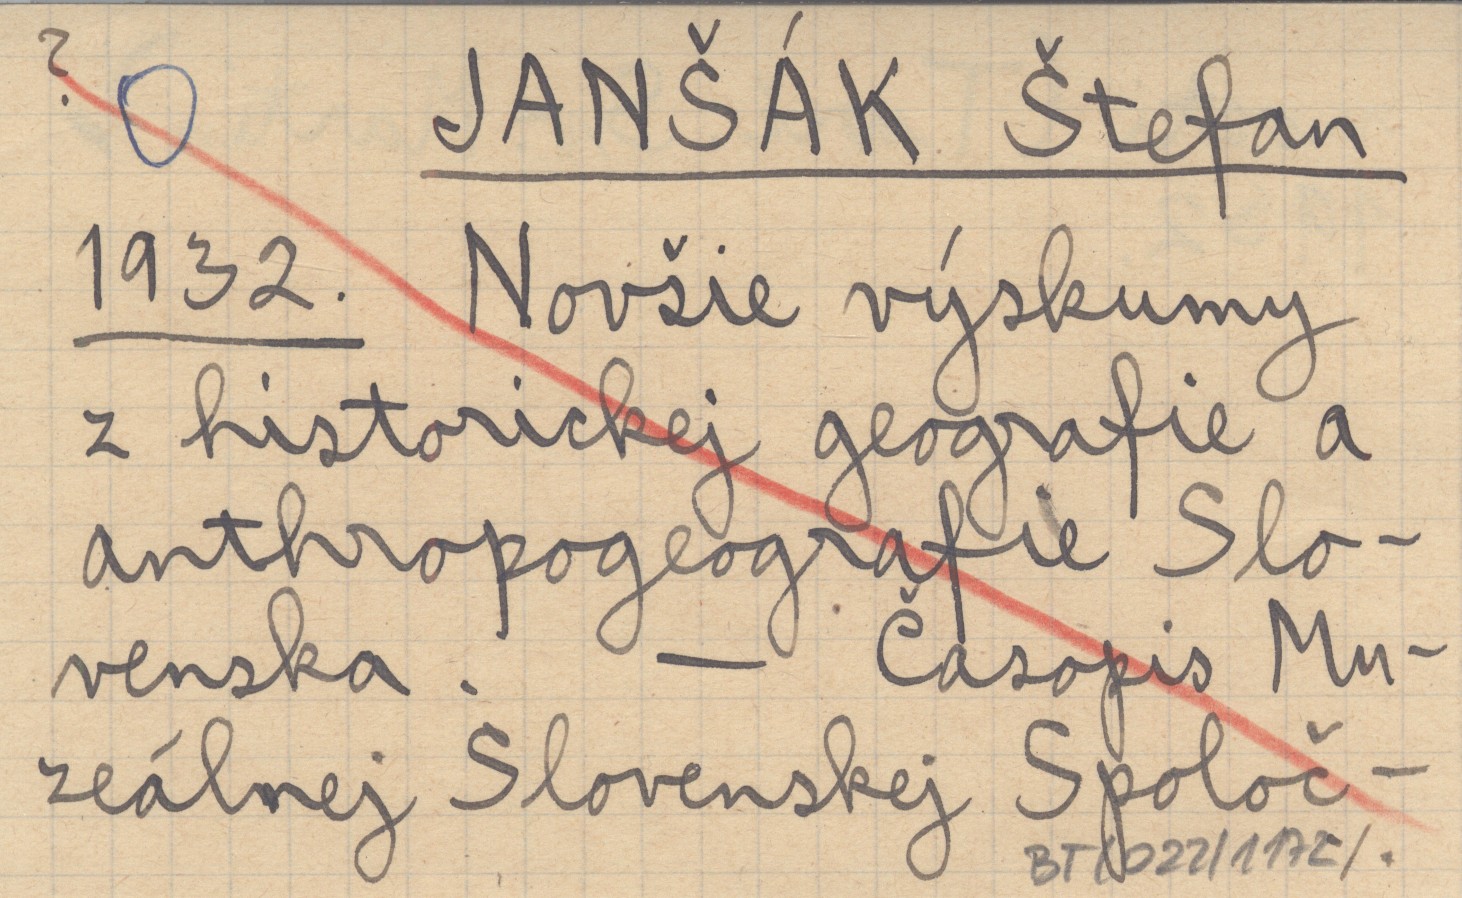 ?
JANŠÁK Štefan
1932. Novšie výskumy
z historickej geografie a
anthropogeografie Slo-
venska. — Časopis Mu-
zeálnej Slovenskej Spoloč-